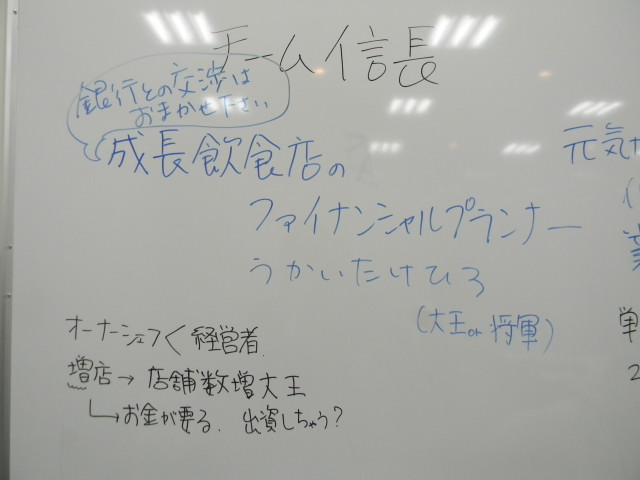 チーム信長
銀行との交渉は
おまかせ下さい
成長飲食店の
ファイナンシャルプランナー
うかいたけひろ
(大王or将軍)
オーナーシェフ＜経営者
増店→店舗数増大王
↳お金が要る. 出資しちゃう?
元気
単
2